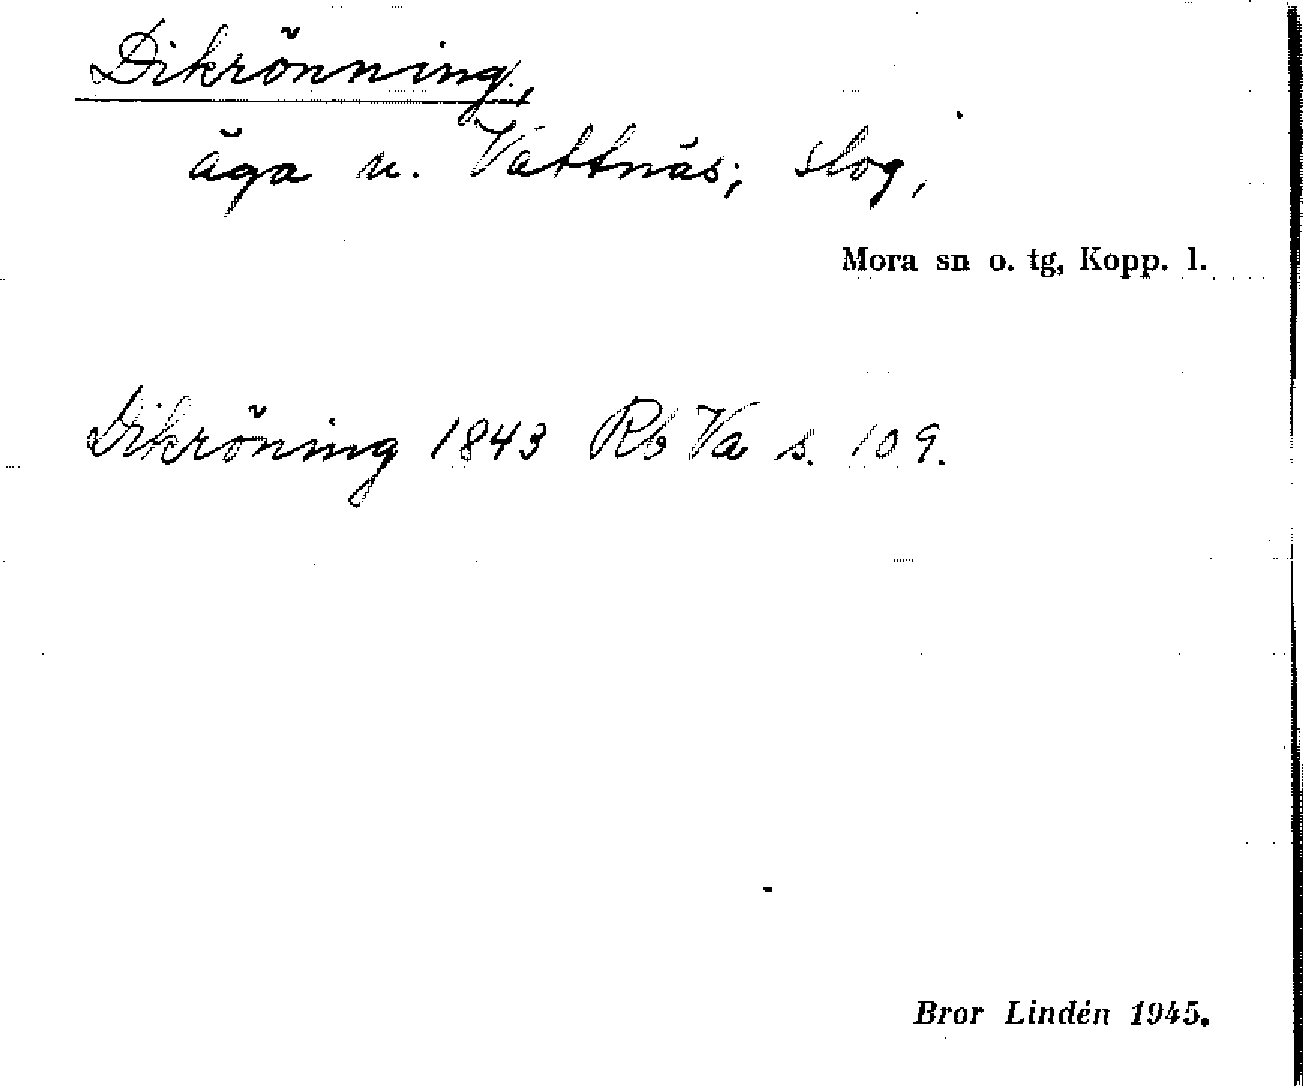 Dikrönning,
äga u. Vattnäs; slog,
Mora sn o. tg, Kopp. l.
Dikröning 1843 Rb Va s. 109.
Bror Lindén 1945.